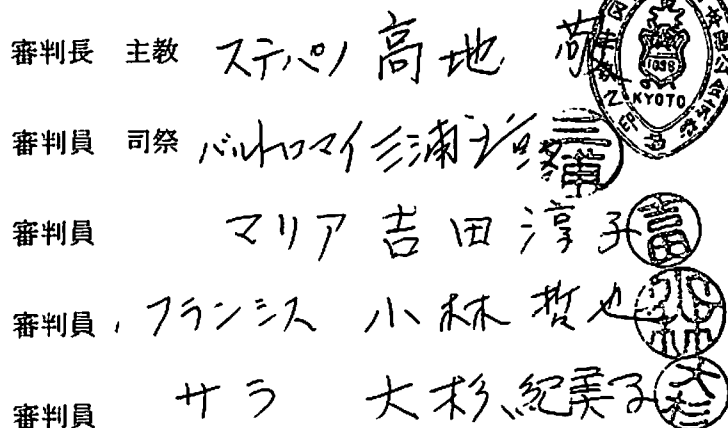 審判長 主教 ステパノ 高地 敬
審判員 司祭 バルトロマイ 三浦
審判員 マリア 吉田 淳子
審判員 フランシス 小林 哲也
審判員 サラ 大杉 紀美子
1038
KYOTO
三浦
吉田
小林
大杉